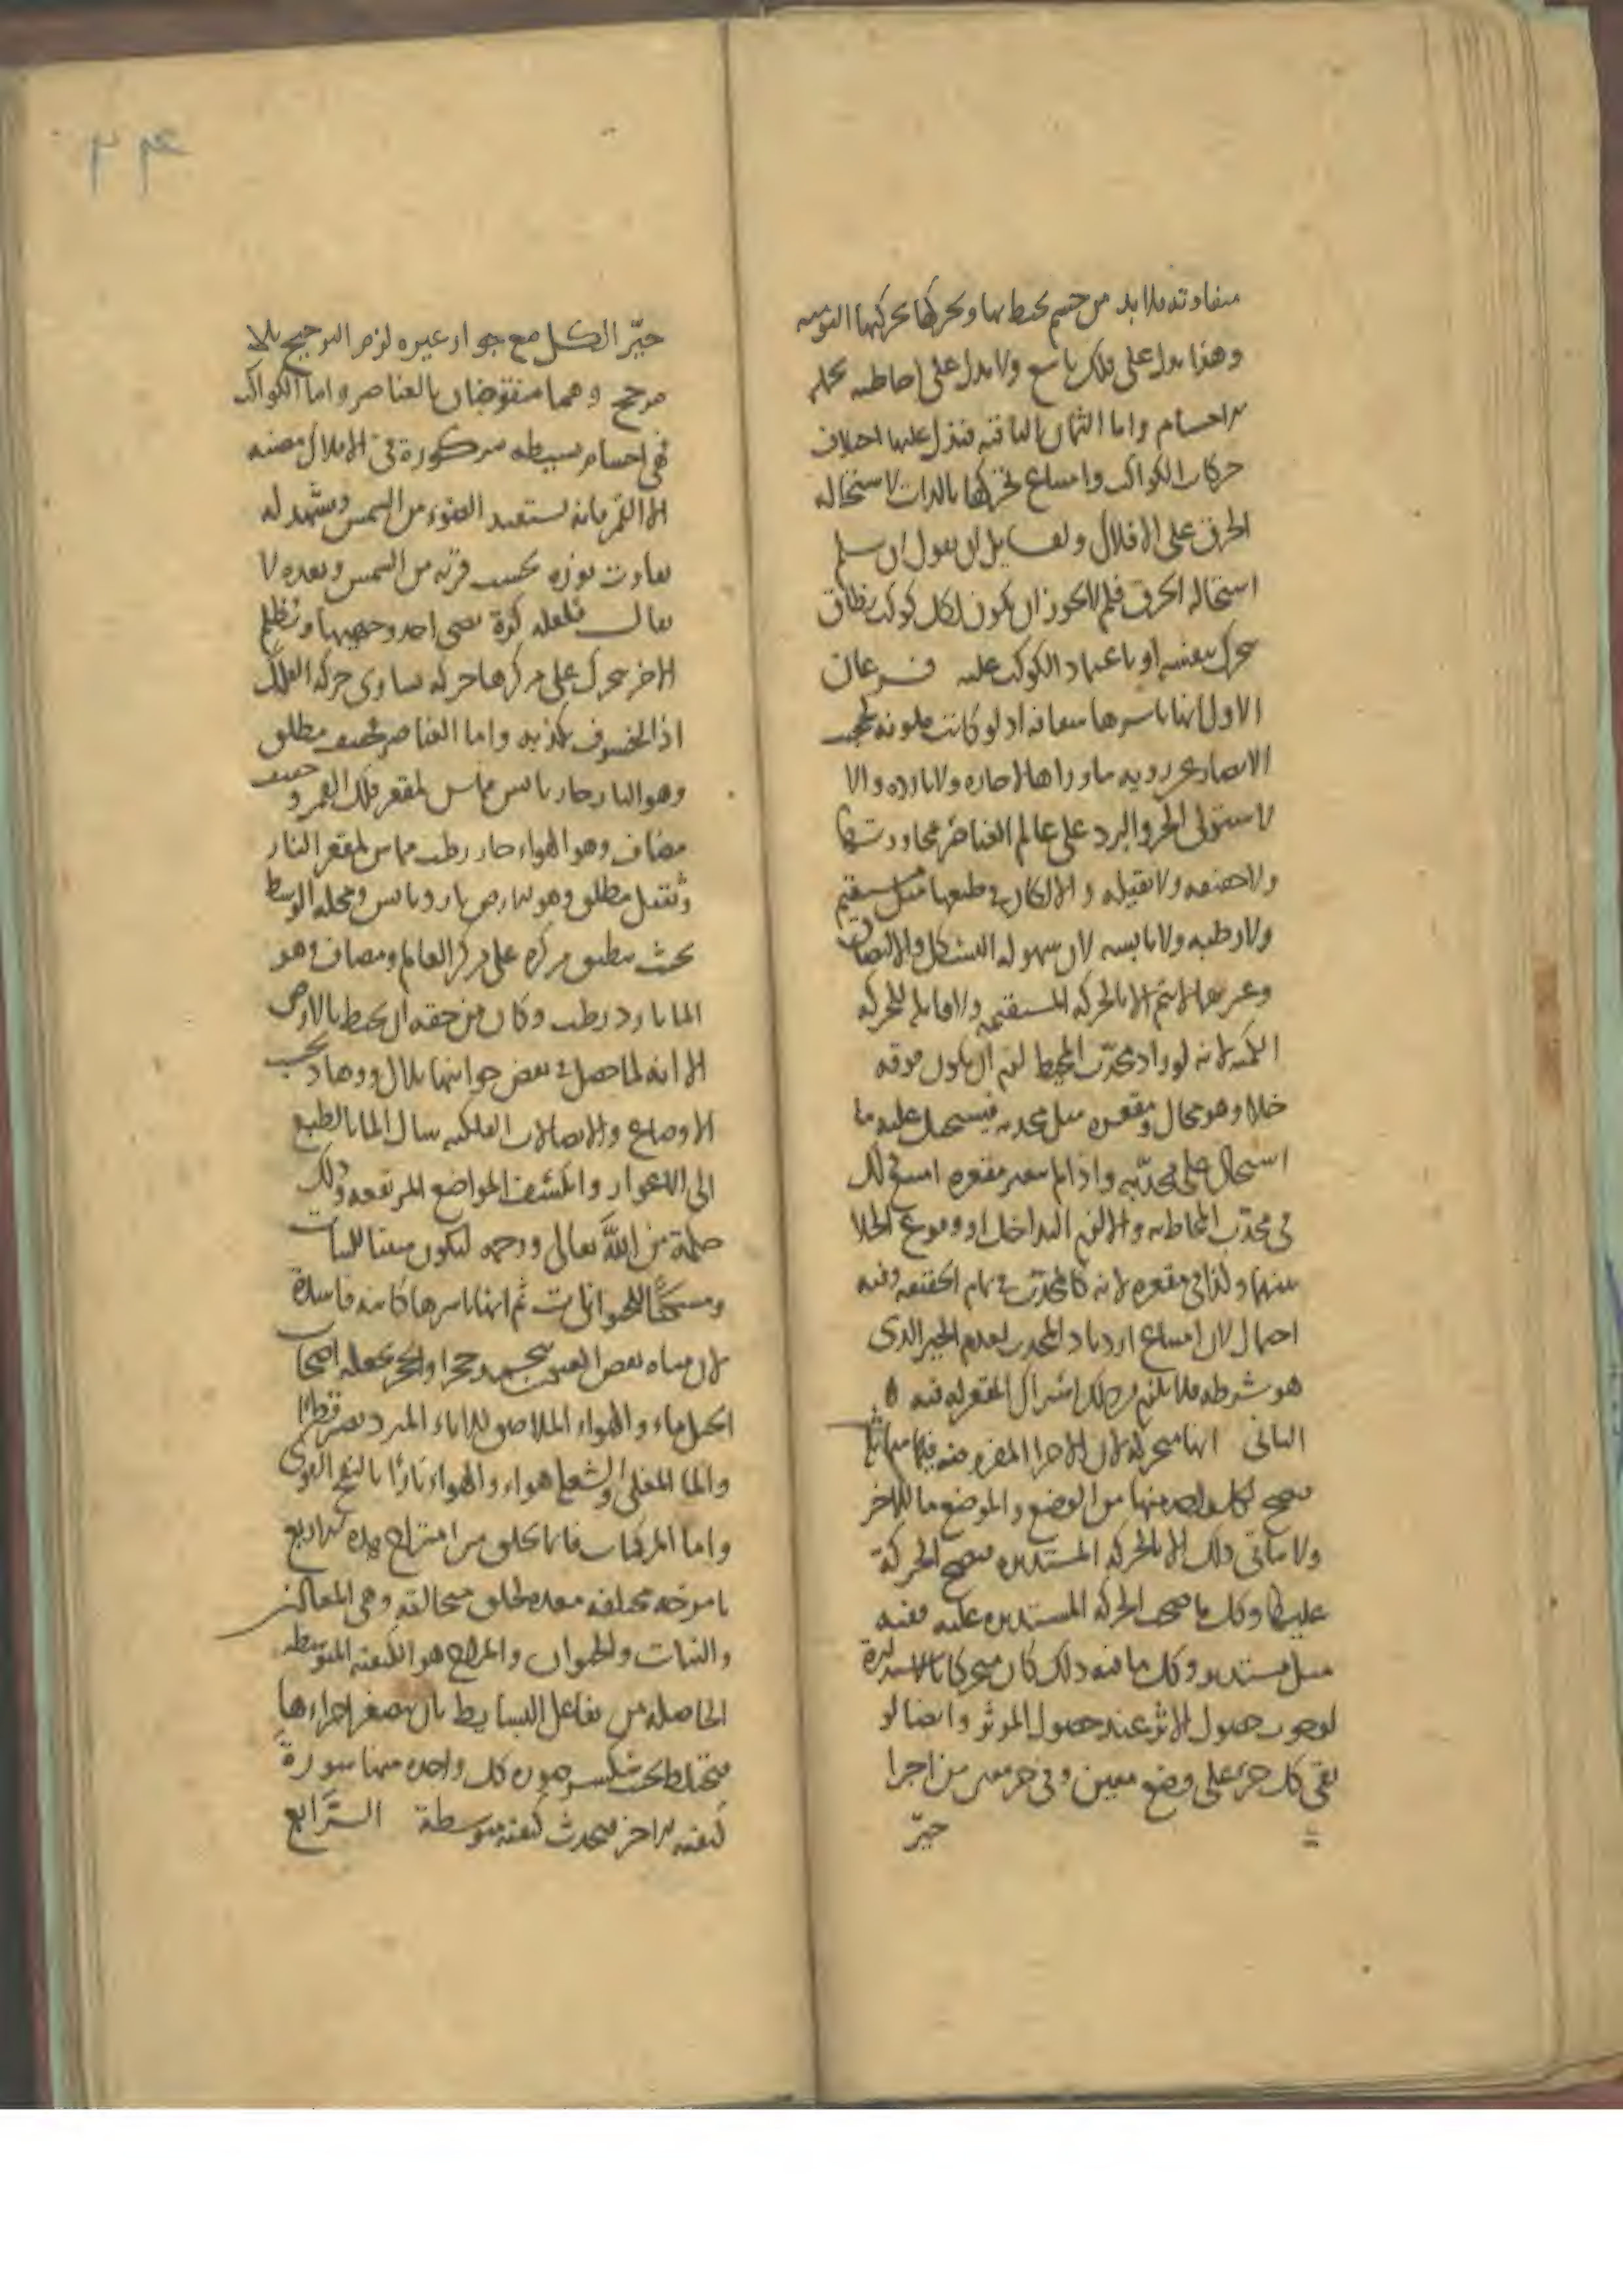 متفاوتة فلا بد من جسم يحيط بها ويحركها تحريكها اليومية
وهذا يدل على فلك تاسع ولا يدل على احاطته بجملة
الاجسام واما الثمان الباقية فيدل عليها اختلاف
حركات الكواكب وامتناع تحركها بالذات لاستحالة
الخرق على الافلاك ولقايل ان يقول ان سلم
استحالة الخرق فلم لا يجوز ان يكون لكل كوكب نطاق
يتحرك بنفسه او باعتماد الكوكب عليه فرعان
الاول انها باسرها شفافة اذ لو كانت ملونة لحجبت
الابصار عن رؤية ما وراها لا حارة ولا باردة والا
لاستولى الحر والبرد على عالم العناصر لمجاورتها
ولا خفيفة ولا ثقيلة والا لكان في طبعها ميل مستقيم
ولا رطبة ولا يابسة لان سهولة التشكل والالتصاق
وعسرها لا يتم الا بالحركة المستقيمة ولا قابلة للحركة
الكمية لانه لو ازداد محدب المحيط لزم ان يكون فوقه
خلاء وهو محال ومقعره مثل محدبه فيستحيل عليه ما
استحال على محدبه واذا لم يتغير مقعره امتنع ذلك
في محدب المحاط به والا لزم التداخل او وقوع الخلا
بينهما وكذا في مقعره لانه كالمحدب في تمام الحقيقة وفيه
احتمال لان امتناع ازدياد المحدب لعدم الحيز الذي
هو شرطه فلا يلزم من ذلك اشتراك المقعر له فيه
الثاني انها متحركة لان الاجزا المفروضة فيها متماثلة
فيصح لكل واحد منها من الوضع والموضع ما للاخر
ولا يتأتى ذلك الا بالحركة المستديرة فيصح الحركة
عليها وكل ما صحت الحركة المستديرة عليه ففيه
ميل مستدير وكل ما فيه ذلك كان متحركا بالاستدارة
لوجوب حصول الاثر عند حصول الموثر وايضا لو
بقي كل جزء على وضع معين وفي حيز معين من اجزا
حيّز
۲۴
حيّز الكل مع جواز غيره لزم الترجيح بلا
مرجح وهما منقوضان بالعناصر واما الكواكب
فهي اجسام بسيطة مركوزة في الافلاك مضيئة
الا القمر فانه يستفيد الضوء من الشمس ويشهد له
تفاوت نوره بحسب قربه من الشمس وبعده لا
يقال فلعله كرة يضيء احد وجهيها ويظلم
الاخر يتحرك على مركزها حركة تساوي حركة الفلك
اذ الخسوف يكذبه واما العناصر فخفيف مطلق
وهو النار حار يابس مماس لمقعر فلك القمر وخفيف
مضاف وهو الهواء حار رطب مماس لمقعر النار
وثقيل مطلق وهو الارض بارد يابس ومحله الوسط
بحيث ينطبق مركزه على مركز العالم ومضاف وهو
الما بارد رطب وكان من حقه ان يحيط بالارض
الا انه لما حصل في بعض جوانبها تلال ووهاد بحسب
الاوضاع والاتصالات الفلكية سال الما بالطبع
الى الاغوار وانكشفت المواضع المرتفعة وذلك
حكمة من الله تعالى ورحمة ليكون منبتا للنبات
ومسكنًا للحيوانات ثم انها باسرها كاينة فاسدة
لان مياه بعض العيون يتحجر حجرا والحجر يجعله اصحاب
الحيل ماء والهواء الملاصق للاناء المبرد يصير قطرًا
والما المغلي والشعل هواء والهواء نارًا بالنفخ القوي
واما المركبات فانما تخلق من امتزاج هذه الاربع
بامزجة مختلفة معدة لخلق متخالفة وهي المعادن
والنبات والحيوان والمزاج هو الكيفية المتوسطة
الحاصلة من تفاعل البسايط بان يصغر اجزاءها
فيختلط بحيث تنكسر صورة كل واحدة منها سورة
كيفية الاخر فيحدث كيفية متوسطة الرابع